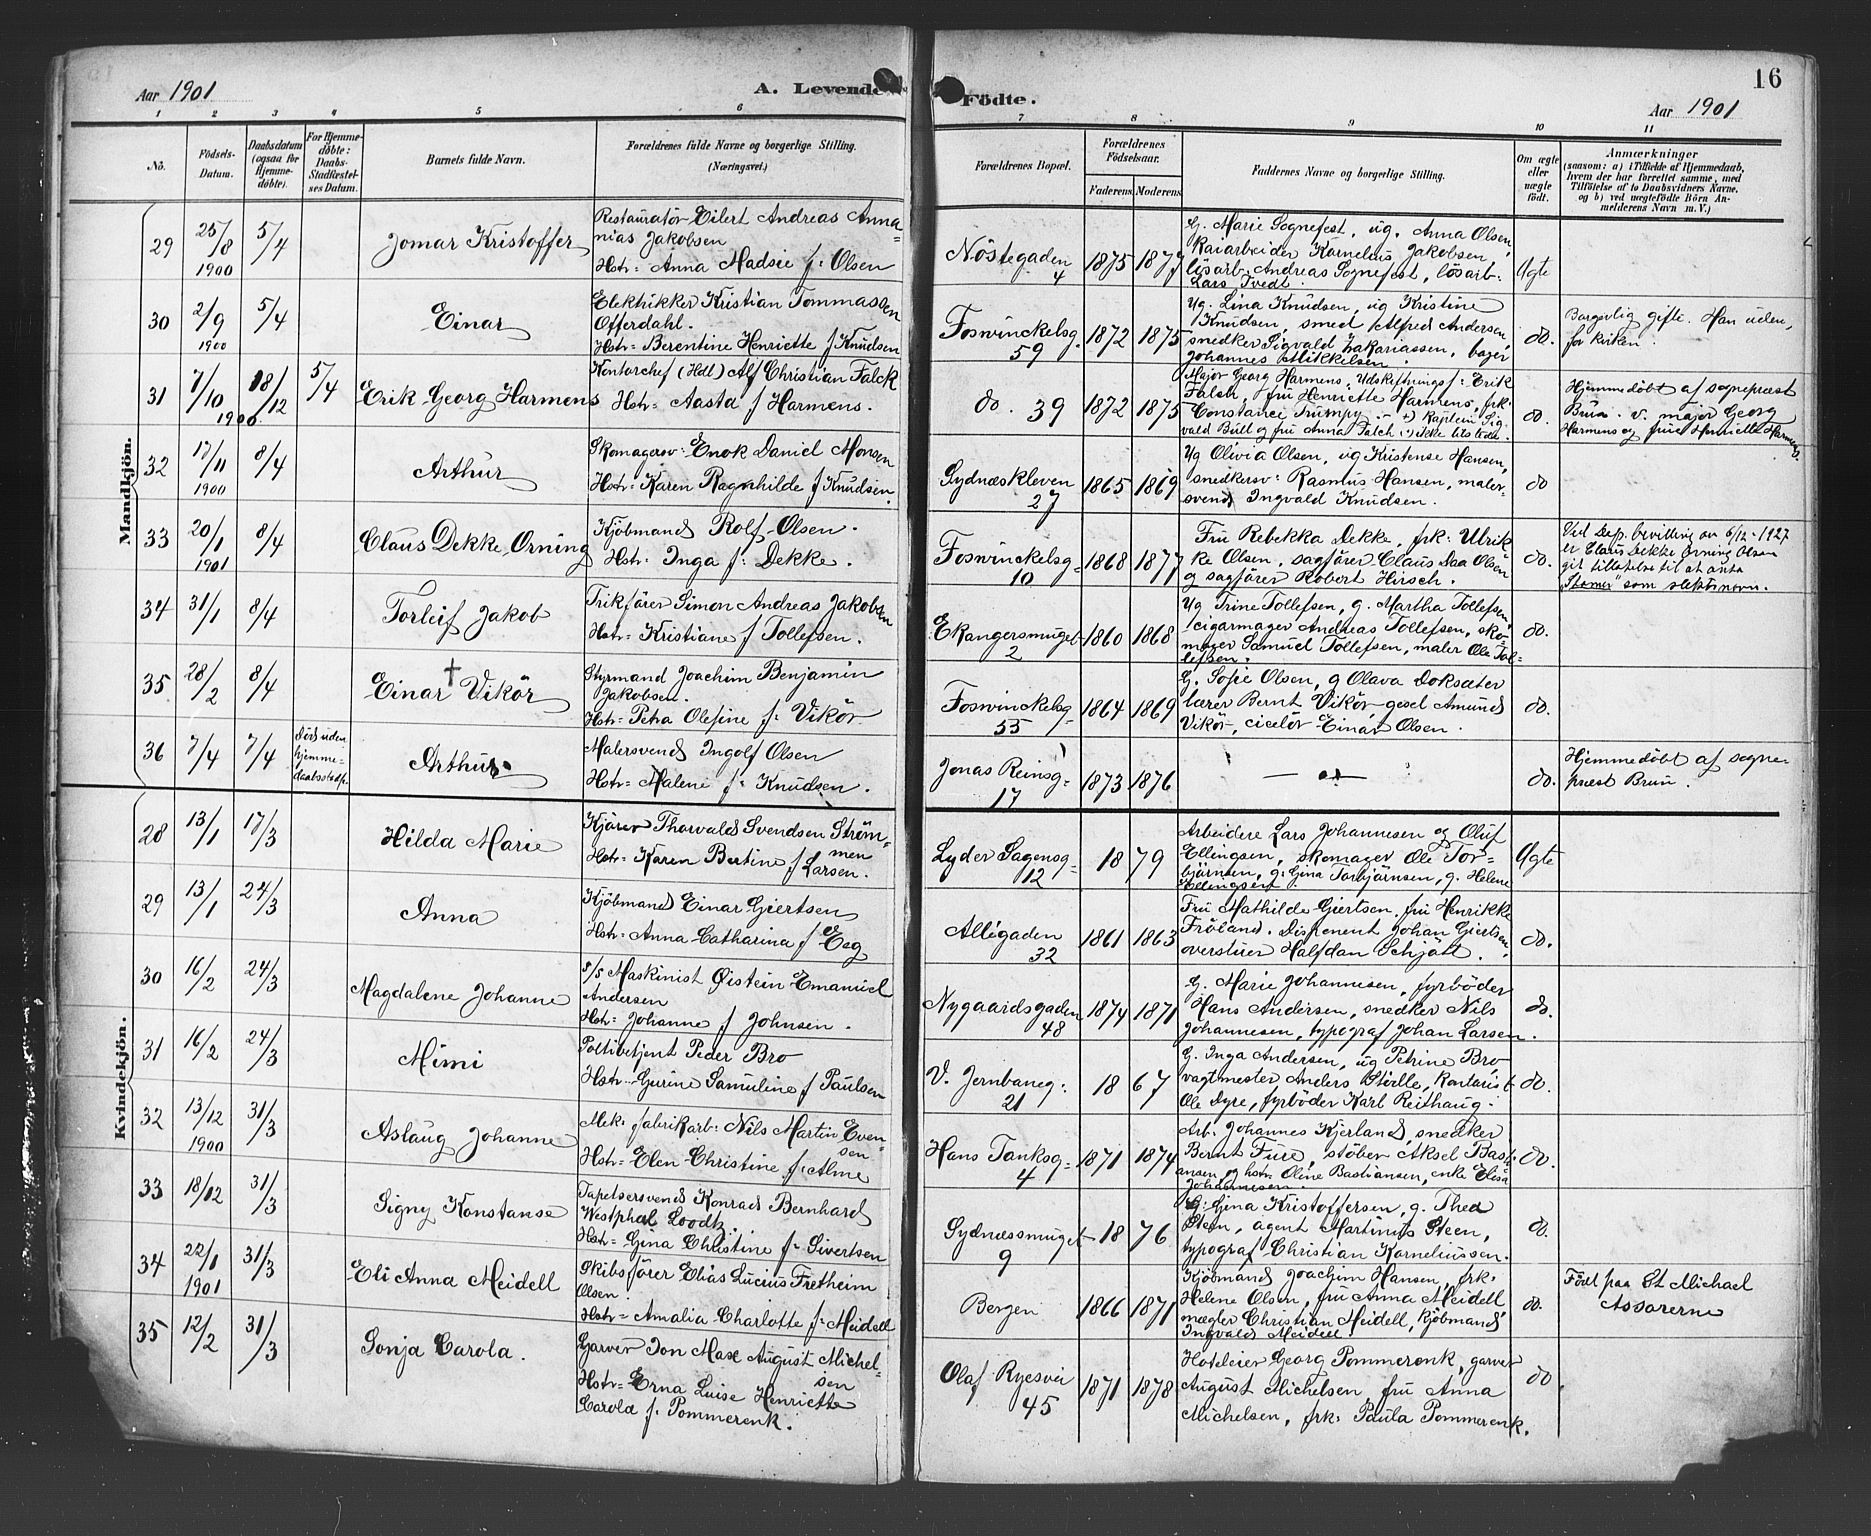 Aar 1901
A. Levende
Födte.
16
Aar 1901
1 2 3 4 5 6 7 8 9 10 11
No.
Födsels-Datum.
Daabsdatum (ogsaa for Hjemmedöbte).
For Hjemmedöbte: Daabs-Stadfæstelses Datum.
Barnets fulde Navn.
Forældrenes fulde Navne og borgerlige Stilling.
(Næringsvei.)
Forældrenes Bopæl.
Forældrenes Födselsaar.
Faderens Moderens
Faddernes Navne og borgerlig Stilling.
Om ægte eller uægte födt.
Anmærkninger
(saasom: a) i Tilfælde af Hjemmedaab,
hvem der har forrettet samme, med
Tilföielse af to Daabsvidners Navne,
og b) ved uægtefödte Börn Anmelderens Navn m. V.)
Mandkjön.
29 25/8 1900 5/4 Jomar Kristoffer
Restauratör Eilert Andreas Anna=
nias Jakobsen
Hstr= Anna Madsie f: Olsen
Nöstegaden 4 1875 1877
G. Marie Sognefest, ug. Anna Olsen,
Kaiarbeider Kornelius Jakobsen,
lösarb. Andreas Sognefest, lösarb.
Lars Tvedt.
Ægte
30 2/9 1900 5/4 Einar
Elektrikker Kristian Tommasen
Offerdahl.
Hstr= Berentine Henriette f Knudsen
Fosvinckelsg. 59 1872 1875
Ug. Lina Knudsen, ug Kristine
Knudsen, smed Alfred Andersen,
snedker Sigvald Zakariassen, bager
Johannes Mikkelsen.
do.
Borgerlig gifte. Han uden,
for kirken.
31 7/10 1900 18/12 5/4 Erik Georg Harmens
Kontorchef (Hdl) Alf Christian Falck
Hstr= Aasta f Harmens.
do. 39 1872 1875
Major Georg Harmens, Udskiftningsf: Erik
Falch, fru Henriette Harmens, frk:
Constance Trumpy
vald Bull og fru Anna Falch
do.
Hjemmedöbt af sognepræst
Brun. v. major Georg
Harmens og frue Henriette Harmens.
32 17/11 1900 8/4 Arthur
Skomagersv: Enok Daniel Monsen
Hstr= Karen Ragnhilde f Knudsen.
Sydnæskleven 27 1865 1869
Ug Olivia Olsen, ug Kristense Hansen,
snedkersv: Rasmus Hansen, maler-
svend Ingvald Knudsen.
do
33 20/1 1901 8/4 Claus Dekke Orning
Kjöbmand Rolf Olsen.
Hstr: Inga f: Dekke.
Fosvinckelsg= 10 1868 1877
Fru Rebekka Dekke, frk: Ulrik
ke Olsen, sagförer Claus Daa Olsen
og sagförer Robert Hirsch.
do.
Ved Dep. bevilling av 6/12-1927
er Claus Dekke Orning Olsen
git tillatelse til at anta
som slektsnavn.
34 31/1 8/4 Torleif Jakob
Trikförer Simon Andreas Jakobsen
Hstr= Kristiane f Tollefsen.
Ekangersmuget 2 1860 1868
Ug Trine Tollefsen, g. Martha Tollefsen,
cigarmager Andreas Tollefsen, sko-
mager Samuel Tollefsen, maler Ole Tol=
lefsen.
do.
35 28/2 8/4 Einar † Vikör
Styrmand Joachim Benjamin
Jakobsen.
Hstr= Petra Olefine f: Vikör
Fosvinckelsg 55 1864 1869
G. Sofie Olsen, g Olava Doksæter
lærer Bernt Vikör, gesel Amund
Vikör, cicelör Einar Olsen.
do.
36 7/4 7/4 Död uden hjemme-daabsstadf. Arthur
Malersvend Ingolf Olsen
Hstr= Malene f: Knudsen.
Jonas Reinsg= 17 1873 1876
do.
Hjemmedöbt af sogne-
præst Brun.
Kvindekjön.
28 13/1 17/3 Hilda Marie
Kjörer Thorvald Svendsen Ström-
men
Hstr= Karen Bertine f Larsen.
Lyder Sagensg= 12 18 79
Arbeidere Lars Johannesen og Oluf
Ellingsen, skomager Ole Tor=
björnsen, g: Gina Torbjörnsen, g. Helene
Ellingsen.
Ægte
29 13/1 24/3 Anna
Kjöbmand Einar Giertsen
Hstr= Anna Catharina f Eeg
Allégaden 32 1861 1863
Fru Mathilde Giertsen, fru Henrikke
Fröland. Disponent Johan Giertsen,
overstuer Halfdan Schjött.
do.
30 16/2 24/3 Magdalene Johanne
s/s Maskinist Øistein Emanuel
Andersen
Hstr= Johanne f Johnsen.
Nygaardsgaden 48 1874 1871
G. Marie Johannesen, fyrböder
Hans Andersen, snedker Nils
Johannesen, typograf Johan Larsen.
do.
31 16/2 24/3 Mimi
Politibetjent Peder Bro
Hstr= Gurine Samuline f Paulsen
V. Jernbaneg: 21 18 67
G. Inga Andersen, ug Petrine Bro,
vagtmester Anders Stölle, kontorist
Ole Dyre, fyrböder Karl Reithaug.
do.
32 13/12 1900 31/3 Aslaug Johanne
Mek: fabrikarb: Nils Martin Even
sen
Hstr= Elen Christine f: Alme
Hans Tanksg= 4 1871 1874
Arb. Johannes Kjerland, snedker
Bernt Fure, stöber Aksel Bast
iansen og hstr: Oline Bastiansen, enke Elisa
Johannesen.
do.
33 18/12 31/3 Signy Konstanse
Tapetsersvend Konrad Bernhard
Westphal Loodtz.
Hstr= Gina Christine f: Sivertsen
Sydnæssmuget 9 18 76
G: Gina Kristoffersen, g. Thea
Steen, agent Martinus Steen,
typograf Christian Korneliussen.
do.
34 22/1 1901 31/3 Eli Anna Meidell
Skibsförer Elias Lucius Fretheim
Olsen.
Hstr= Amalia Charlotte f: Meidell
Bergen 1866 1871
Kjöbmand Joachim Hansen, frk:
Helene Olsen, fru Anna Meidell,
mægler Christian Meidell, kjöbmand
Ingvald Meidell.
do.
Födt paa St Michael
Assorerne
35 12/2 31/3 Sonja Carola.
Garver Jon Maxe August Michel-
sen
Hstr= Erna Luise Henriette
Carola f: Pommerenk.
Olaf Ryesvei 45 1871 1878
Hoteleier Georg Pommerenk, garver
August Michelsen, fru Anna
Michelsen, frk: Paula Pommerenk.
do